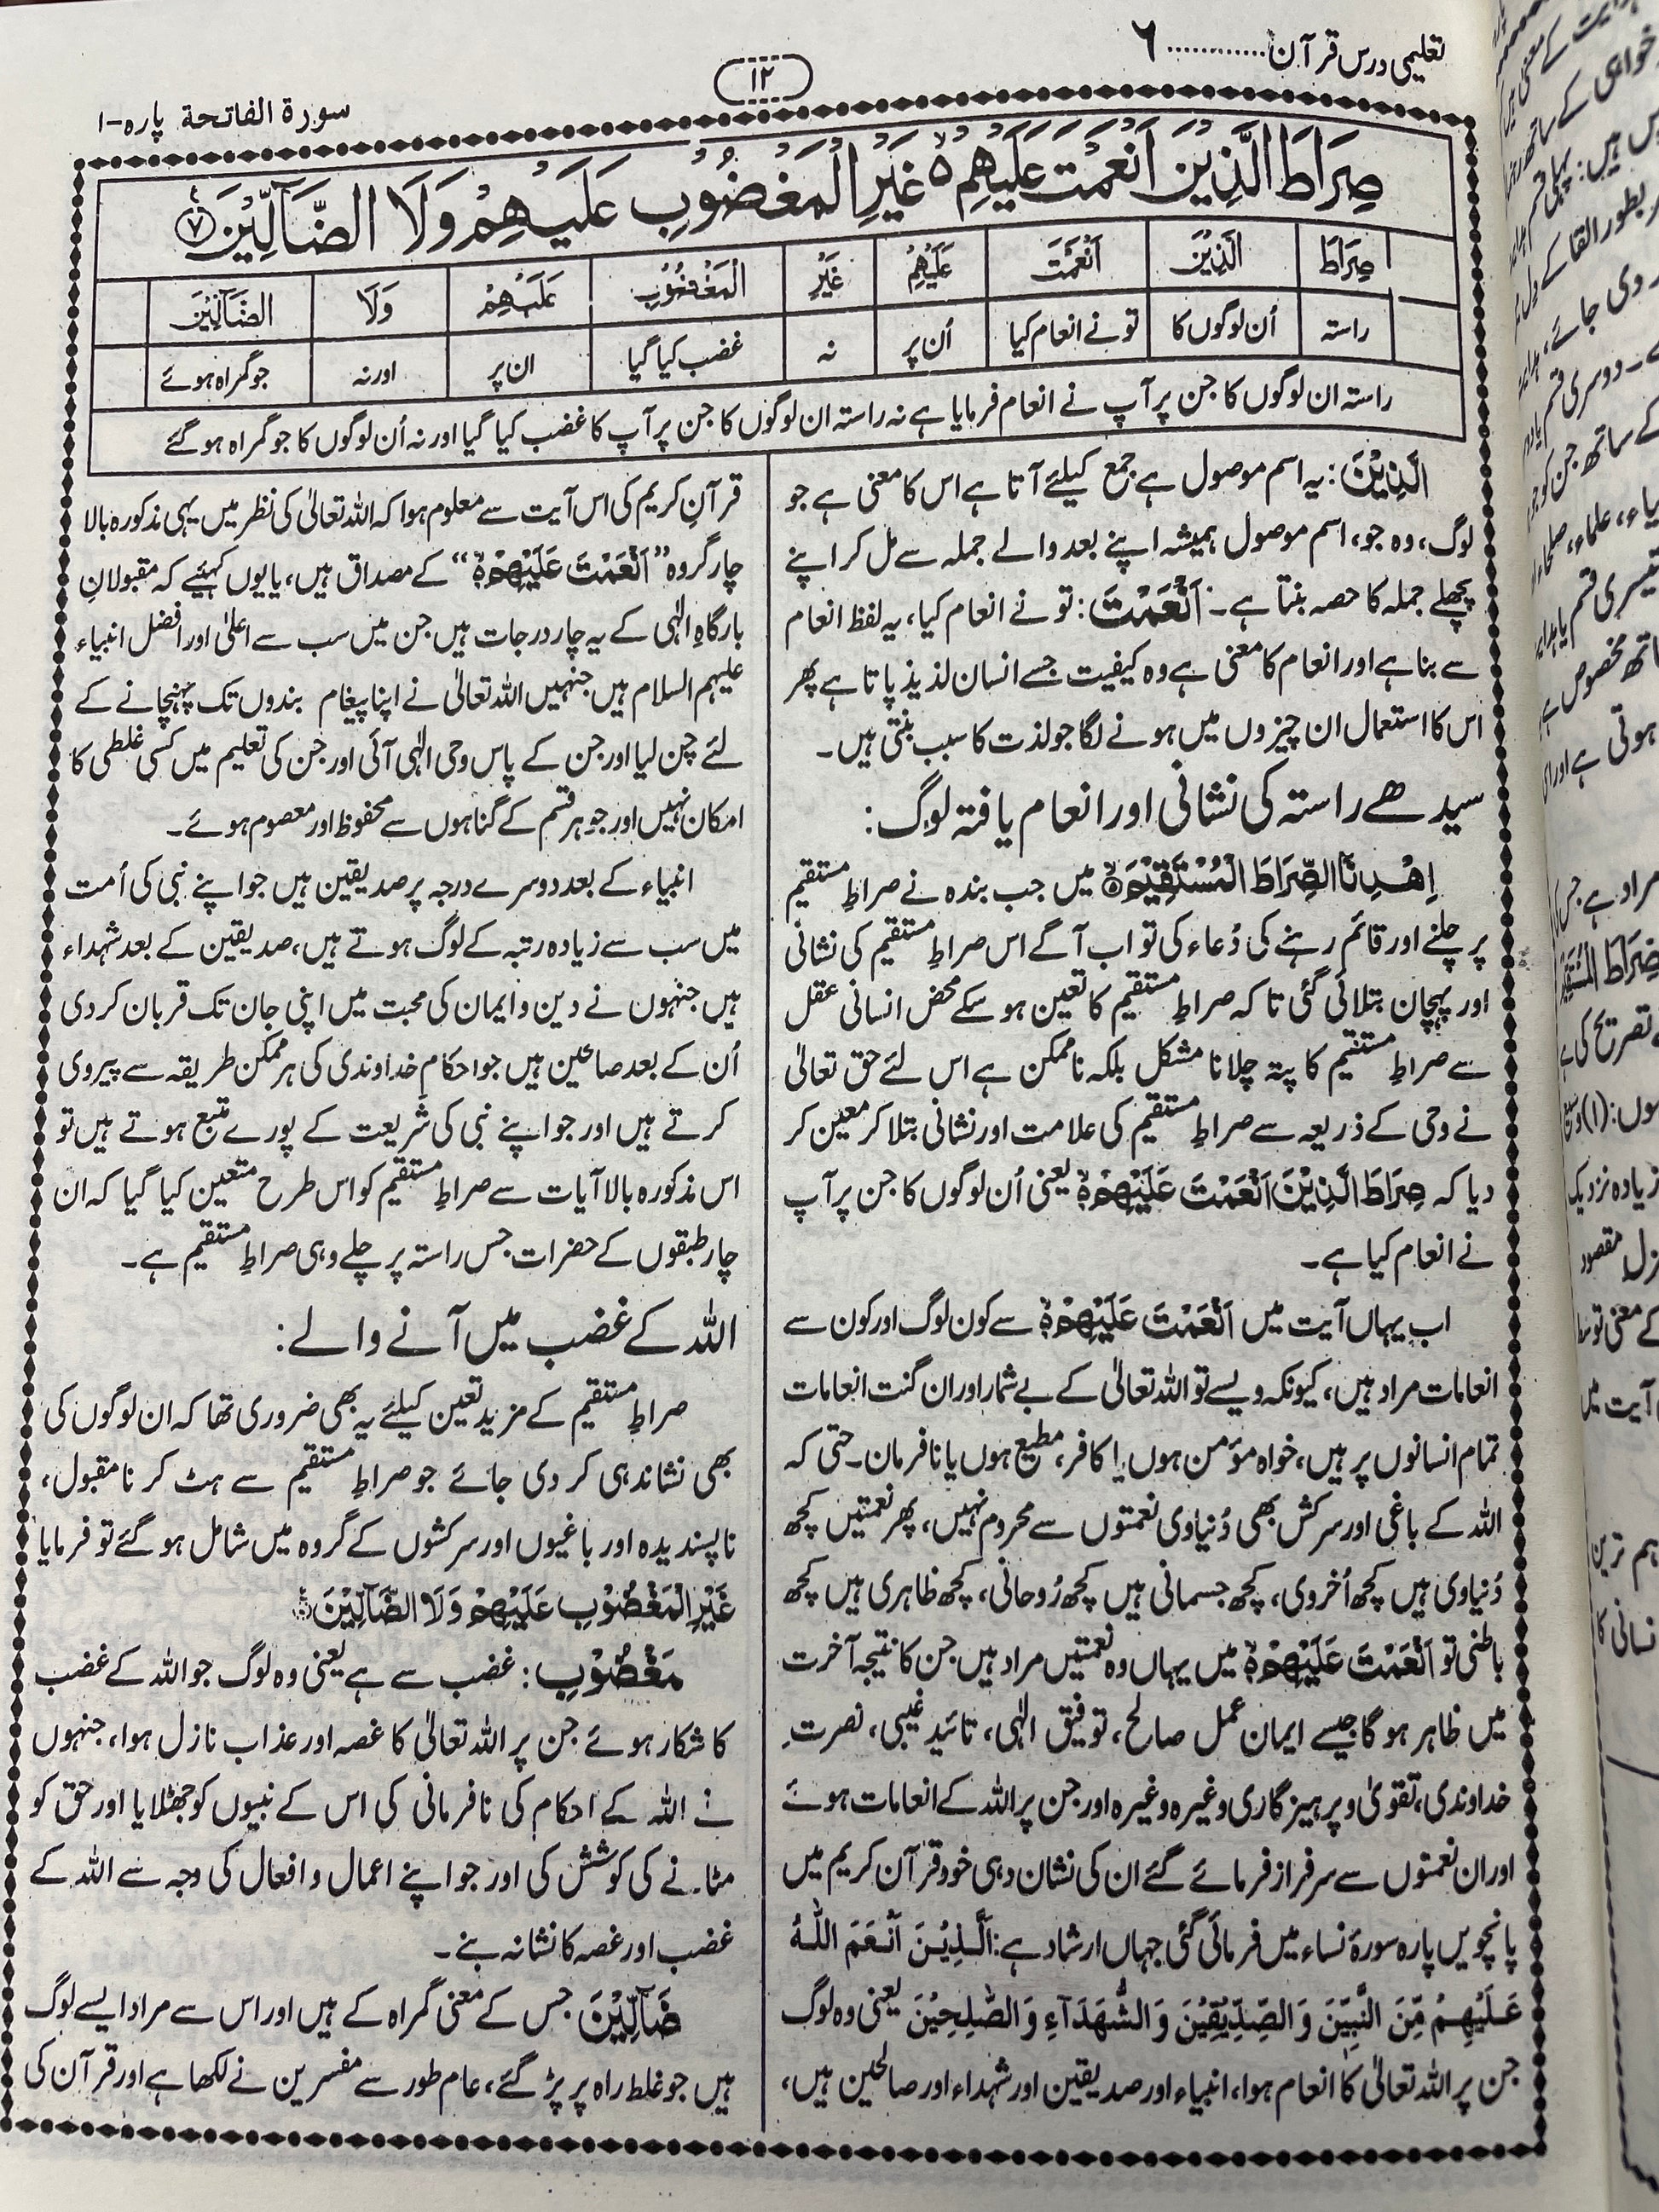 تعلیمی درس قرآن............۶
۱۲
سورۃ الفاتحۃ پارہ-۱
صِرَاطَ الَّذِيْنَ اَنْعَمْتَ عَلَيْهِمْ ۙ۬ غَيْرِ الْمَغْضُوْبِ عَلَيْهِمْ وَلَا الضَّآلِّيْنَ ۷
صِرَاطَ الَّذِيْنَ اَنْعَمْتَ عَلَيْهِمْ غَيْرِ الْمَغْضُوْبِ عَلَيْهِمْ وَلَا الضَّآلِّيْنَ
راستہ اُن لوگوں کا تو نے انعام کیا اُن پر نہ غضب کیا گیا ان پر اور نہ جو گمراہ ہوئے
راستہ ان لوگوں کا جن پر آپ نے انعام فرمایا ہے نہ راستہ ان لوگوں کا جن پر آپ کا غضب کیا گیا اور نہ اُن لوگوں کا جو گمراہ ہو گئے
الَّذِيْنَ: یہ اسم موصول ہے جمع کیلئے آتا ہے اس کا معنی ہے جو
لوگ، وہ جو، اسم موصول ہمیشہ اپنے بعد والے جملہ سے مل کر اپنے
پچھلے جملہ کا حصہ بنتا ہے۔ اَنْعَمْتَ: تو نے انعام کیا، یہ لفظ انعام
سے بنا ہے اور انعام کا معنی ہے وہ کیفیت جسے انسان لذیذ پاتا ہے پھر
اس کا استعمال ان چیزوں میں ہونے لگا جو لذت کا سبب بنتی ہیں۔
سیدھے راستہ کی نشانی اور انعام یافتہ لوگ:
اِهْدِنَا الصِّرَاطَ الْمُسْتَقِيْمَ ۵ میں جب بندہ نے صراطِ مستقیم
پر چلنے اور قائم رہنے کی دُعاء کی تو اب آگے اس صراطِ مستقیم کی نشانی
اور پہچان بتلائی گئی تا کہ صراطِ مستقیم کا تعین ہو سکے محض انسانی عقل
سے صراطِ مستقیم کا پتہ چلانا مشکل بلکہ ناممکن ہے اس لئے حق تعالیٰ
نے وحی کے ذریعہ سے صراطِ مستقیم کی علامت اور نشانی بتلا کر معین کر
دیا کہ صِرَاطَ الَّذِيْنَ اَنْعَمْتَ عَلَيْهِمْ یعنی اُن لوگوں کا جن پر آپ
نے انعام کیا ہے۔
اب یہاں آیت میں اَنْعَمْتَ عَلَيْهِمْ سے کون لوگ اور کون سے
انعامات مراد ہیں، کیونکہ ویسے تو اللہ تعالیٰ کے بے شمار اور ان گنت انعامات
تمام انسانوں پر ہیں، خواہ مؤمن ہوں یا کافر، مطیع ہوں یا نافرمان۔ حتی کہ
اللہ کے باغی اور سرکش بھی دُنیاوی نعمتوں سے محروم نہیں، پھر نعمتیں کچھ
دُنیاوی ہیں کچھ اُخروی، کچھ جسمانی ہیں کچھ رُوحانی، کچھ ظاہری ہیں کچھ
باطنی تو اَنْعَمْتَ عَلَيْهِمْ میں یہاں وہ نعمتیں مراد ہیں جن کا نتیجہ آخرت
میں ظاہر ہوگا جیسے ایمان عمل صالح، توفیق الٰہی، تائیدِ غیبی، نصرتِ
خداوندی، تقویٰ و پرہیزگاری وغیرہ وغیرہ اور جن پر اللہ کے انعامات ہوئے
اور ان نعمتوں سے سرفراز فرمائے گئے ان کی نشان دہی خود قرآن کریم میں
پانچویں پارہ سورۂ نساء میں فرمائی گئی جہاں ارشاد ہے: اَلَّذِيْنَ اَنْعَمَ اللّٰهُ
عَلَيْهِمْ مِّنَ النَّبِيّٖنَ وَالصِّدِّيْقِيْنَ وَالشُّهَدَآءِ وَالصّٰلِحِيْنَ یعنی وہ لوگ
جن پر اللہ تعالیٰ کا انعام ہوا، انبیاء اور صدیقین اور شہداء اور صالحین ہیں،
قرآنِ کریم کی اس آیت سے معلوم ہوا کہ اللہ تعالیٰ کی نظر میں یہی مذکورہ بالا
چار گروہ ”اَنْعَمْتَ عَلَيْهِمْ“ کے مصداق ہیں، یا یوں کہئیے کہ مقبولانِ
بارگاہِ الٰہی کے یہ چار درجات ہیں جن میں سب سے اعلیٰ اور افضل انبیاء
علیہم السلام ہیں جنہیں اللہ تعالیٰ نے اپنا پیغام بندوں تک پہنچانے کے
لئے چن لیا اور جن کے پاس وحی الٰہی آئی اور جن کی تعلیم میں کسی غلطی کا
امکان نہیں اور جو ہر قسم کے گناہوں سے محفوظ اور معصوم ہوئے۔
انبیاء کے بعد دوسرے درجہ پر صدیقین ہیں جو اپنے نبی کی اُمت
میں سب سے زیادہ رتبہ کے لوگ ہوتے ہیں، صدیقین کے بعد شہداء
ہیں جنہوں نے دین و ایمان کی محبت میں اپنی جان تک قربان کر دی
اُن کے بعد صالحین ہیں جو احکامِ خداوندی کی ہر ممکن طریقہ سے پیروی
کرتے ہیں اور جو اپنے نبی کی شریعت کے پورے متبع ہوتے ہیں تو
اس مذکورہ بالا آیات سے صراطِ مستقیم کو اس طرح متعین کیا گیا کہ ان
چار طبقوں کے حضرات جس راستہ پر چلے وہی صراطِ مستقیم ہے۔
اللہ کے غضب میں آنے والے:
صراطِ مستقیم کے مزید تعین کیلئے یہ بھی ضروری تھا کہ ان لوگوں کی
بھی نشاندہی کر دی جائے جو صراطِ مستقیم سے ہٹ کر نامقبول،
ناپسندیدہ اور باغیوں اور سرکشوں کے گروہ میں شامل ہو گئے تو فرمایا
غَيْرِ الْمَغْضُوْبِ عَلَيْهِمْ وَلَا الضَّآلِّيْنَ
مَغْضُوْبِ: غضب سے ہے یعنی وہ لوگ جو اللہ کے غضب
کا شکار ہوئے جن پر اللہ تعالیٰ کا غصہ اور عذاب نازل ہوا، جنہوں
نے اللہ کے احکام کی نافرمانی کی اس کے نبیوں کو جھٹلایا اور حق کو
مٹانے کی کوشش کی اور جو اپنے اعمال و افعال کی وجہ سے اللہ کے
غضب اور غصہ کا نشانہ بنے۔
ضَآلِّيْنَ جس کے معنی گمراہ کے ہیں اور اس سے مراد ایسے لوگ
ہیں جو غلط راہ پر پڑ گئے، عام طور سے مفسرین نے لکھا ہے اور قرآن کی